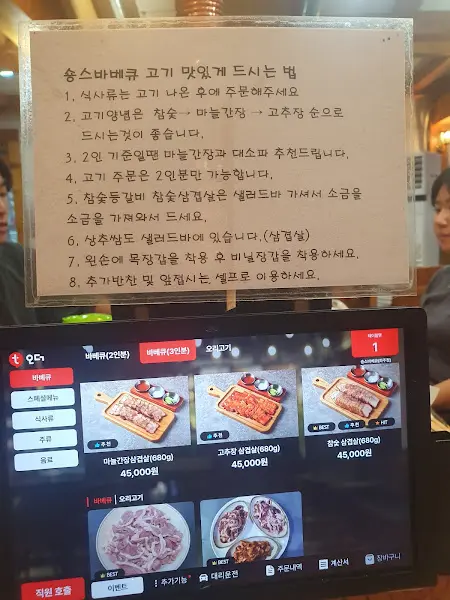 숑스바베큐 고기 맛있게 드시는 법
1, 식사류는 고기 나온 후에 주문해주세요
2, 고기양념은 참숯→ 마늘간장 → 고추장 순으로
드시는것이 좋습니다.
3, 2인 기준일땐 마늘간장과 대소파 추천드립니다.
4, 고기 주문은 2인분만 가능합니다.
5, 참숯등갈비 참숯삼겹살은 샐러드바 가셔서 소금을
소금을 가져와서 드세요,
6, 상추쌈도 샐러드바에 있습니다.(삼겹살)
7, 왼손에 목장갑을 착용 후 비닐장갑을 착용하세요.
8, 추가반찬 및 앞접시는 셀프로 이용하세요.
t 오더
바베큐(2인분) 바베큐(3인분) 오리고기
1
바베큐
스페셜메뉴
식사류
주류
음료
추천 추천 BEST 추천 HIT
마늘간장삼겹살(680g) 고추장 삼겹살(680g) 참숯 삼겹살(680g)
45,000원 45,000원 45,000원
바베큐 | 오리고기
BEST BEST
직원 호출 이벤트 추가기능 대리운전 주문내역 계산서 장바구니